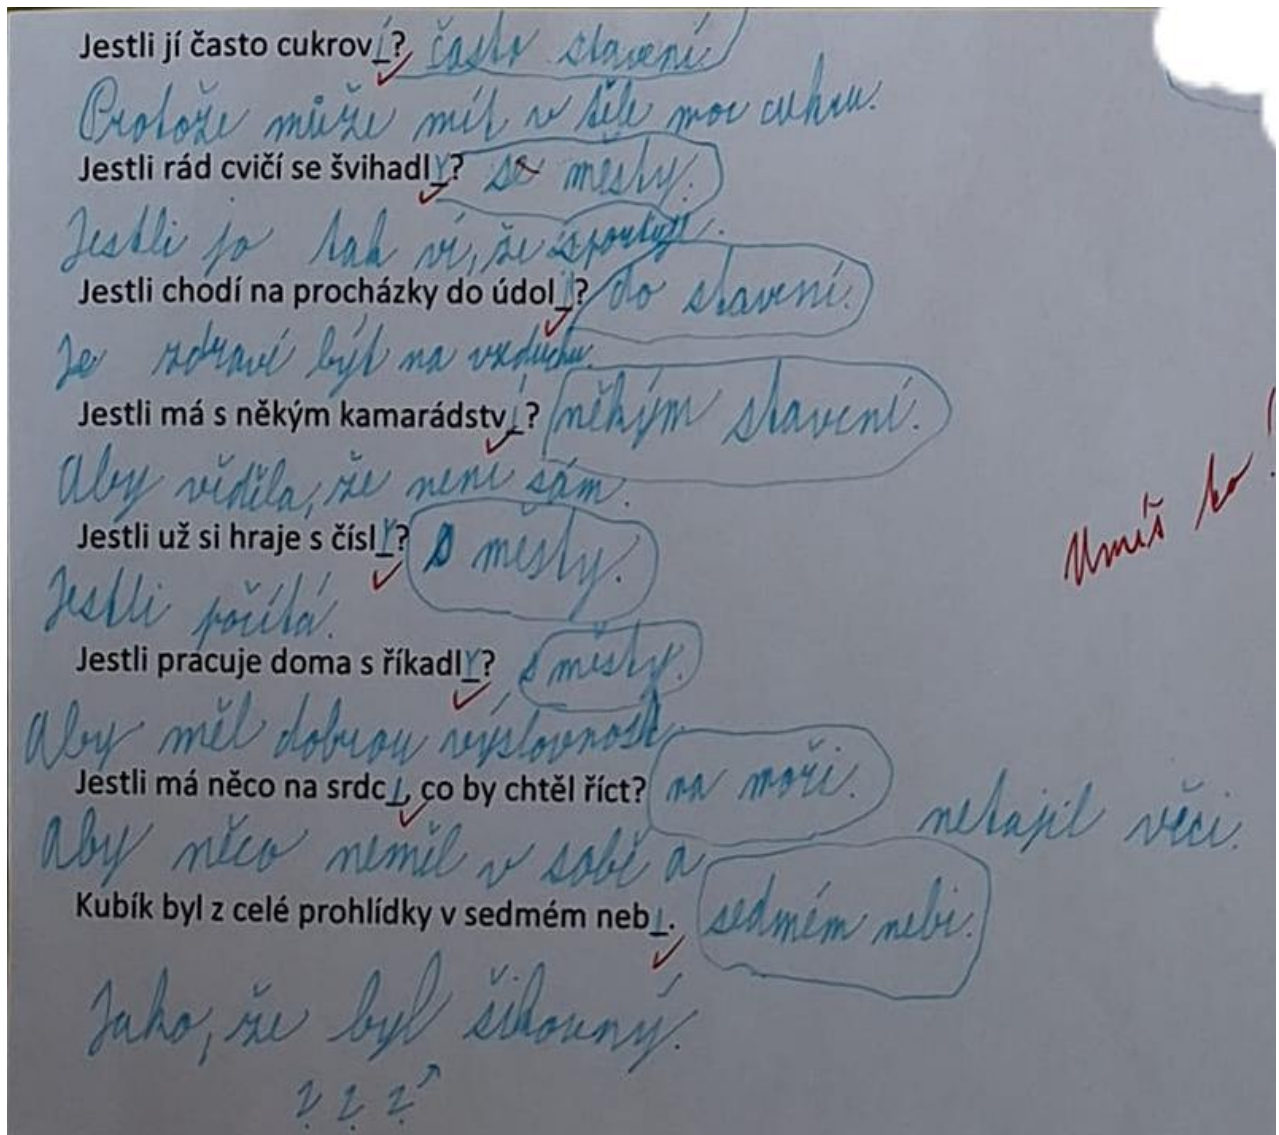 Jestli jí často cukroví? často stavení
Protože může mít v těle moc cukru.
Jestli rád cvičí se švihadly? se městy.
Jestli jo tak ví, že sportuje.
Jestli chodí na procházky do údolí? do stavení.
Je zdraví být na vzduchu.
Jestli má s někým kamarádství? někým stavení.
Aby věděla, že není sám.
Jestli už si hraje s čísly? s městy.
Jestli počítá.
Umíš to!
Jestli pracuje doma s říkadly? s městy.
Aby měl dobrou výslovnost
Jestli má něco na srdci, co by chtěl říct? na moři.
Aby něco neměl v sobě a netajil věci.
Kubík byl z celé prohlídky v sedmém nebi. sedmém nebi.
Jako, že byl šikovný.
? ? ?